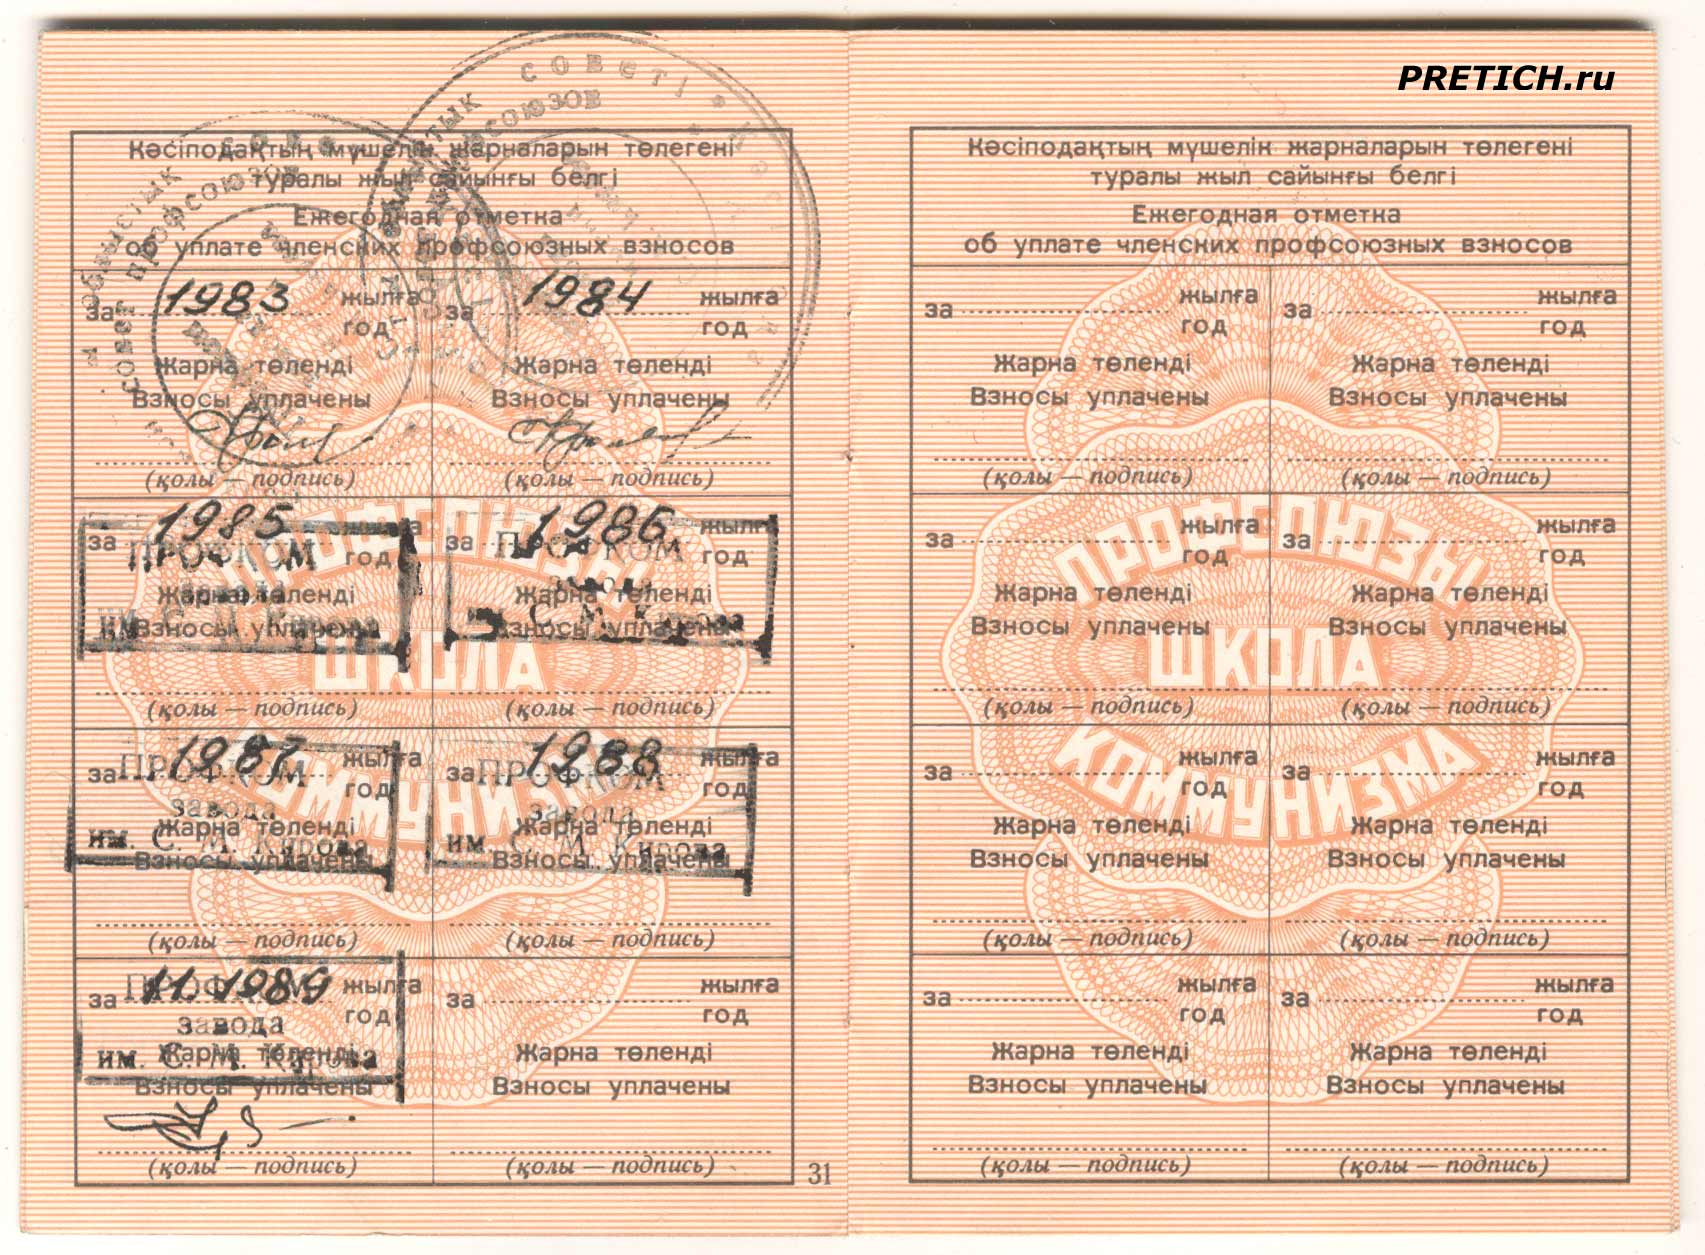 PRETICH.ru
Кәсіподақтың мүшелік жарналарын төлегені
туралы жыл сайынғы белгі
Ежегодная отметка
об уплате членских профсоюзных взносов
за 1983 жылға
год
Жарна төленді
Взносы уплачены
(қолы — подпись)
за 1984 жылға
год
Жарна төленді
Взносы уплачены
(қолы — подпись)
за 1985 жылға
год
ПРОФКОМ
завода
им. С. М. Кирова
Жарна төленді
Взносы уплачены
(қолы — подпись)
за 1986 жылға
год
ПРОФКОМ
завода
С. М. Кирова
Жарна төленді
Взносы уплачены
(қолы — подпись)
за 1987 жылға
год
ПРОФКОМ
завода
им. С. М. Кирова
Жарна төленді
Взносы уплачены
(қолы — подпись)
за 1988 жылға
год
ПРОФКОМ
завода
им. С. М. Кирова
Жарна төленді
Взносы уплачены
(қолы — подпись)
за 11. 1989 жылға
год
ПРОФКОМ
завода
им. С. М. Кирова
Жарна төленді
Взносы уплачены
(қолы — подпись)
за жылға
год
Жарна төленді
Взносы уплачены
(қолы — подпись)
ПРОФСОЮЗЫ
ШКОЛА
КОММУНИЗМА
советі
профсоюзов
совет профсоюзов
31
Кәсіподақтың мүшелік жарналарын төлегені
туралы жыл сайынғы белгі
Ежегодная отметка
об уплате членских профсоюзных взносов
за жылға
год
Жарна төленді
Взносы уплачены
(қолы — подпись)
за жылға
год
Жарна төленді
Взносы уплачены
(қолы — подпись)
за жылға
год
Жарна төленді
Взносы уплачены
(қолы — подпись)
за жылға
год
Жарна төленді
Взносы уплачены
(қолы — подпись)
за жылға
год
Жарна төленді
Взносы уплачены
(қолы — подпись)
за жылға
год
Жарна төленді
Взносы уплачены
(қолы — подпись)
за жылға
год
Жарна төленді
Взносы уплачены
(қолы — подпись)
за жылға
год
Жарна төленді
Взносы уплачены
(қолы — подпись)
ПРОФСОЮЗЫ
ШКОЛА
КОММУНИЗМА